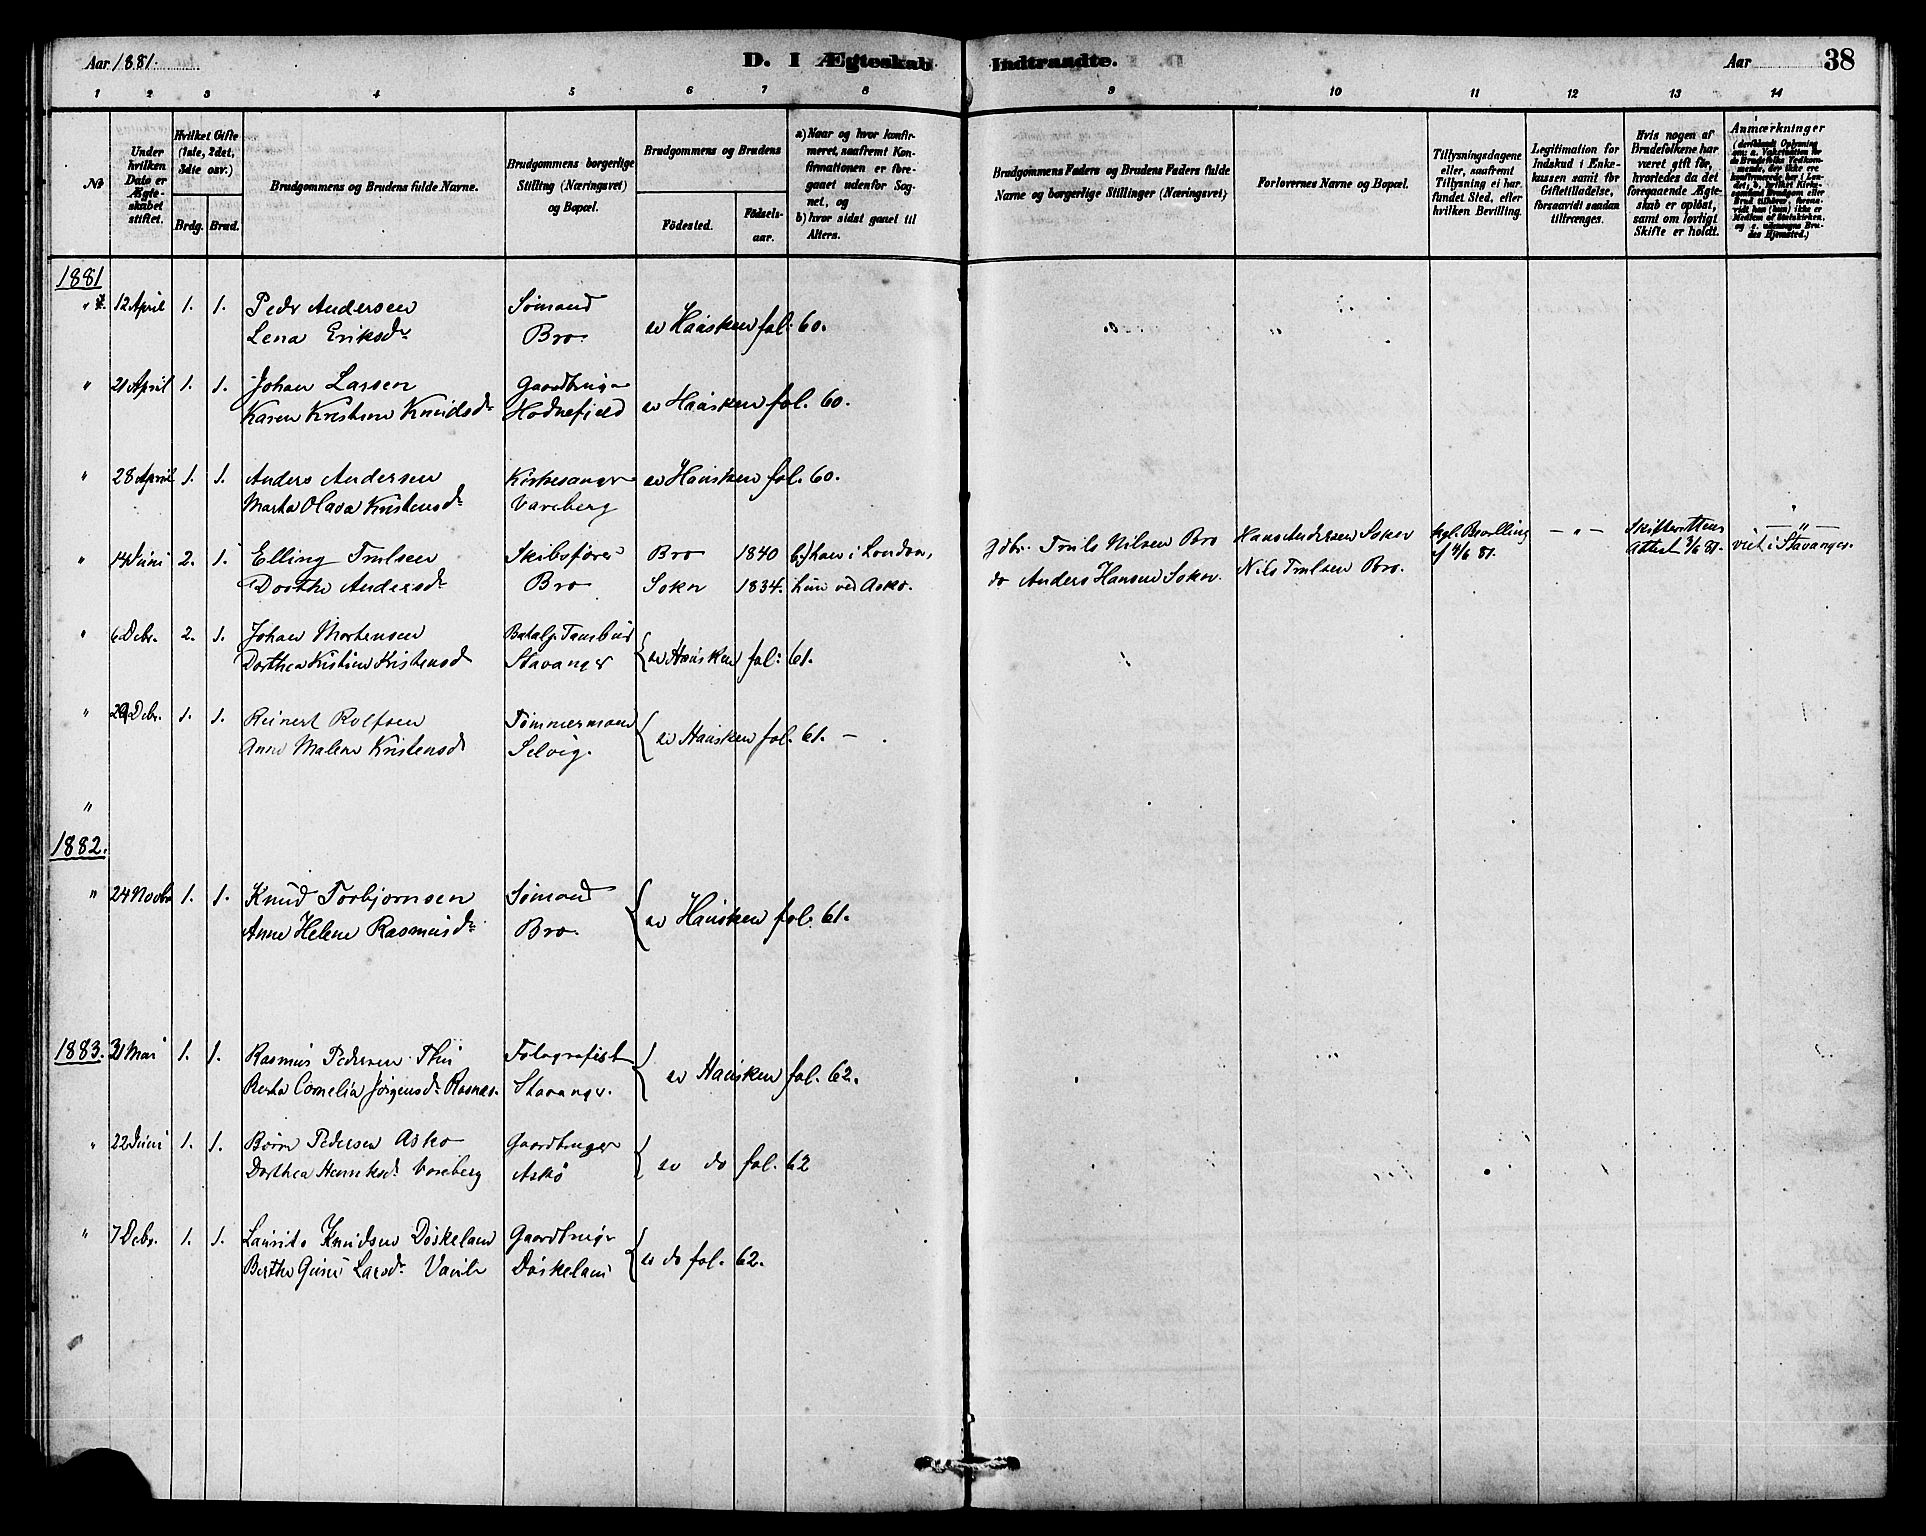 Aar 1881.
D. I Ægteskab Indtraadte.
Aar 38
1 2 3 4 5 6 7 8 9 10 11 12 13 14
No
Under hvilken Dato er Ægteskabet stiftet.
Hvilket Gifte (1ste, 2det, 3die osv.)
Brdg. Brud.
Brudgommens og Brudens fulde Navne.
Brudgommens borgerlige Stilling (Næringsvei) og Bopæl.
Brudgommens og Brudens
Födested.
Födselsaar.
a) Naar og hvor konfirmeret, saafremt Konfirmationen er foregaaet udenfor Sognet, og
b) hvor sidst gaaet til Alters.
Brudgommens Faders og Brudens Faders fulde Navne og borgerlige Stillinger (Næringsvei)
Forlovernes Navne og Bopæl.
Tillysningsdagene eller, saafremt Tillysning ei har fundet Sted, efter hvilken Bevilling.
Legitimation for Indskud i Enkekassen samt for Giftetilladelse, forsaavidt saadan tiltrænges.
Hvis nogen af Brudefolkene har været gift för, hvorledes da det foregaaende Ægteskab er oplöst, samt om lovligt Skifte er holdt.
Anmærkninger
1881
" 12 April 1. 1. Peder Andersen Sømand
Lena Eriksdr Bro se Hausken fol. 60.
" 21 April 1. 1. Johan Larsen Gaardbruger
Karen Kristine Knudsdr Hodnefjeld se Hausken fol. 60.
" 28 April 1. 1. Anders Andersen Kirkesanger se Hausken fol. 60.
Marta Olava Kristensdr Vareberg
" 14 Juni 2. 1. Elling Trulsen Skibsfører Bro 1840 b.) han i London, Gdbr. Truls Nilsen Bro Hans Andersen Sokn kgl. Bevilling — " — Skifterettens — " —
Dorthe Andersdr Bro Sokn 1834. hun ved Askø. do Anders Hansen Sokn. Nils Trulsen Bro. Attest viet i Stavanger.
" 6 Debr. 2. 1. Johan Mortensen
Dorthea Kristine Kristensdr Stavanger se Hausken fol. 61.
" 29 Debr. 1. 1. Reinert Rolfsen Tømmermand
Anne Malene Kristensd Selvig. se Hausken fol. 61. —
"
1882.
" 24 Novbr 1. 1. Knud Torbjørnsen Sømand
Anne Helene Rasmusdr Bro. se Hausken fol. 61.
1883. 31 Mai 1. 1. Rasmus Pedersen Thu Fotografist
Berta Cornelia Jørgensdr Stavanger. se Hausken fol. 62.
" 22 Juni 1. 1. Børre Pedersen Askø Gaardbruger
Dorthea Henriksdr Vareberg Askø se do fol. 62
" 7 Debr. 1. 1. Laurits Knudsen Døskeland Gaardbruger
Berthe Larsdr Døskeland se do fol. 62.